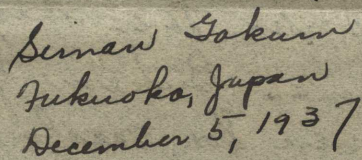 Seinan Gakuin
Fukuoka, Japan
December 5, 1937